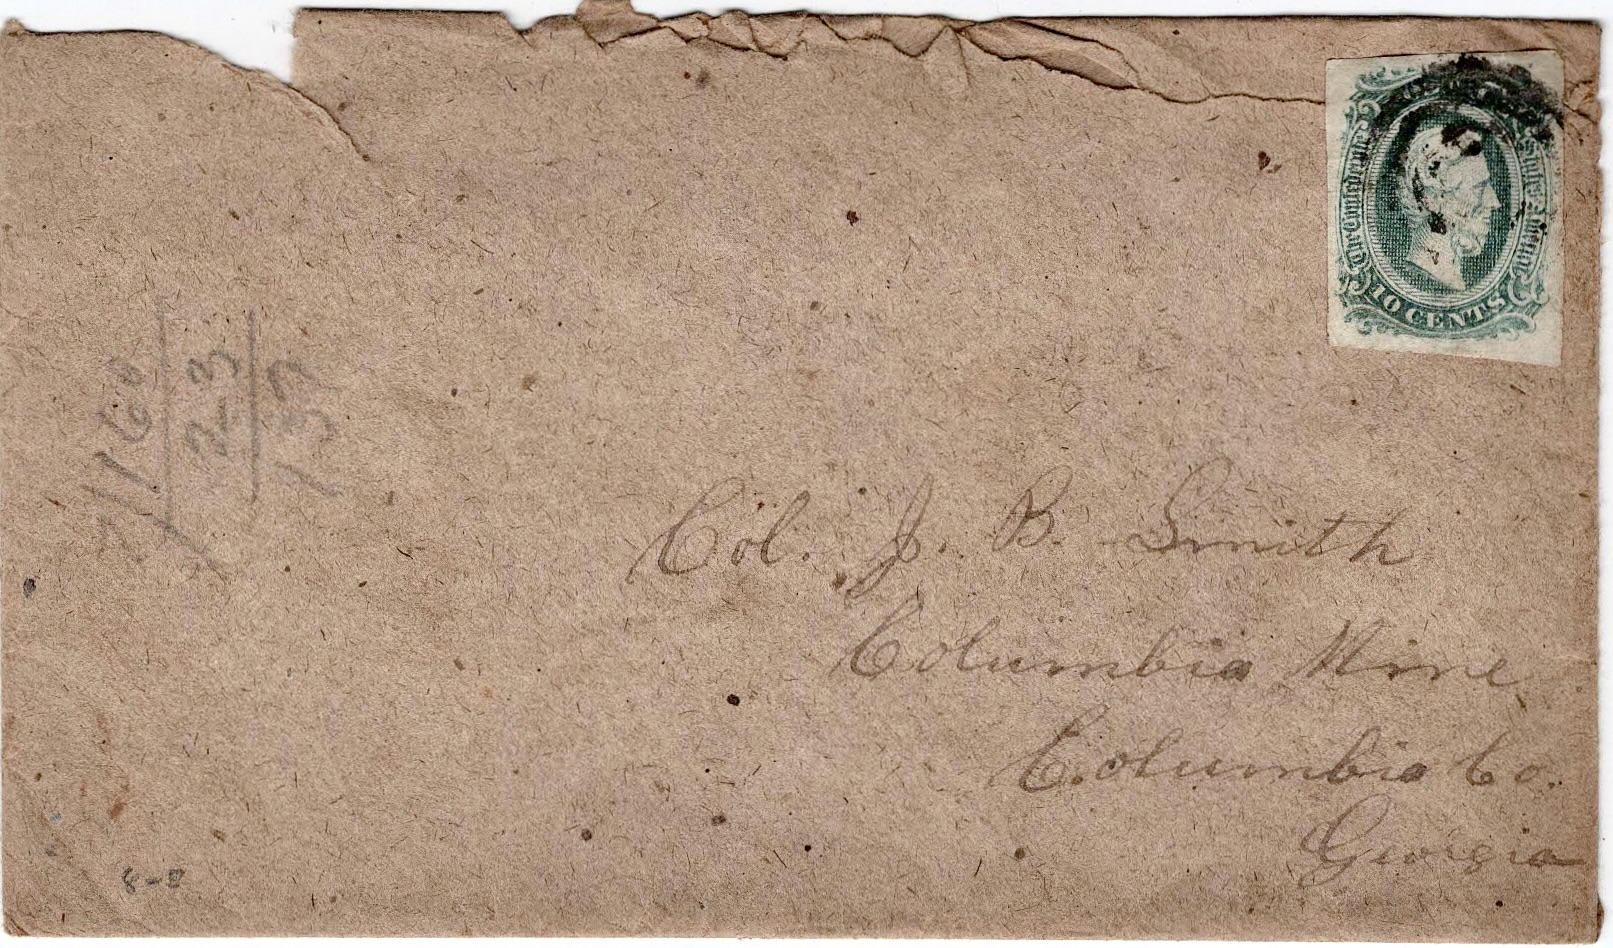 The Confederate States of America
10 CENTS
Col. J. B. Smith
Columbia Mine
Columbia Co.
Georgia
7/160
23
137
8-8